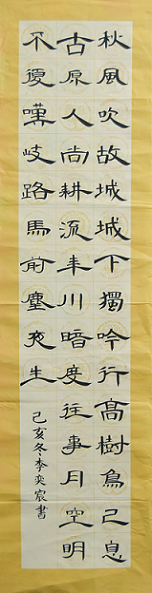 秋風吹故城城下獨吟行高樹鳥已息
古原人尚耕流年川暗度往事月空明
不復嗟岐路馬前塵夜生
己亥冬李奕宸書